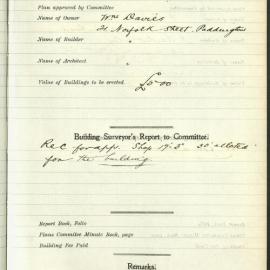 Plan approved by Committee
Name of Owner Wm Davies
21 Norfolk Street, Paddington
Name of Builder "
Name of Architect "
Value of Buildings to be erected. £500
Building Surveyor's Report to Committee.
Rec for app. Shop
for the building
Report Book, Folio
Plans Committee Minute Book, page
Building Fee Paid
Remarks.